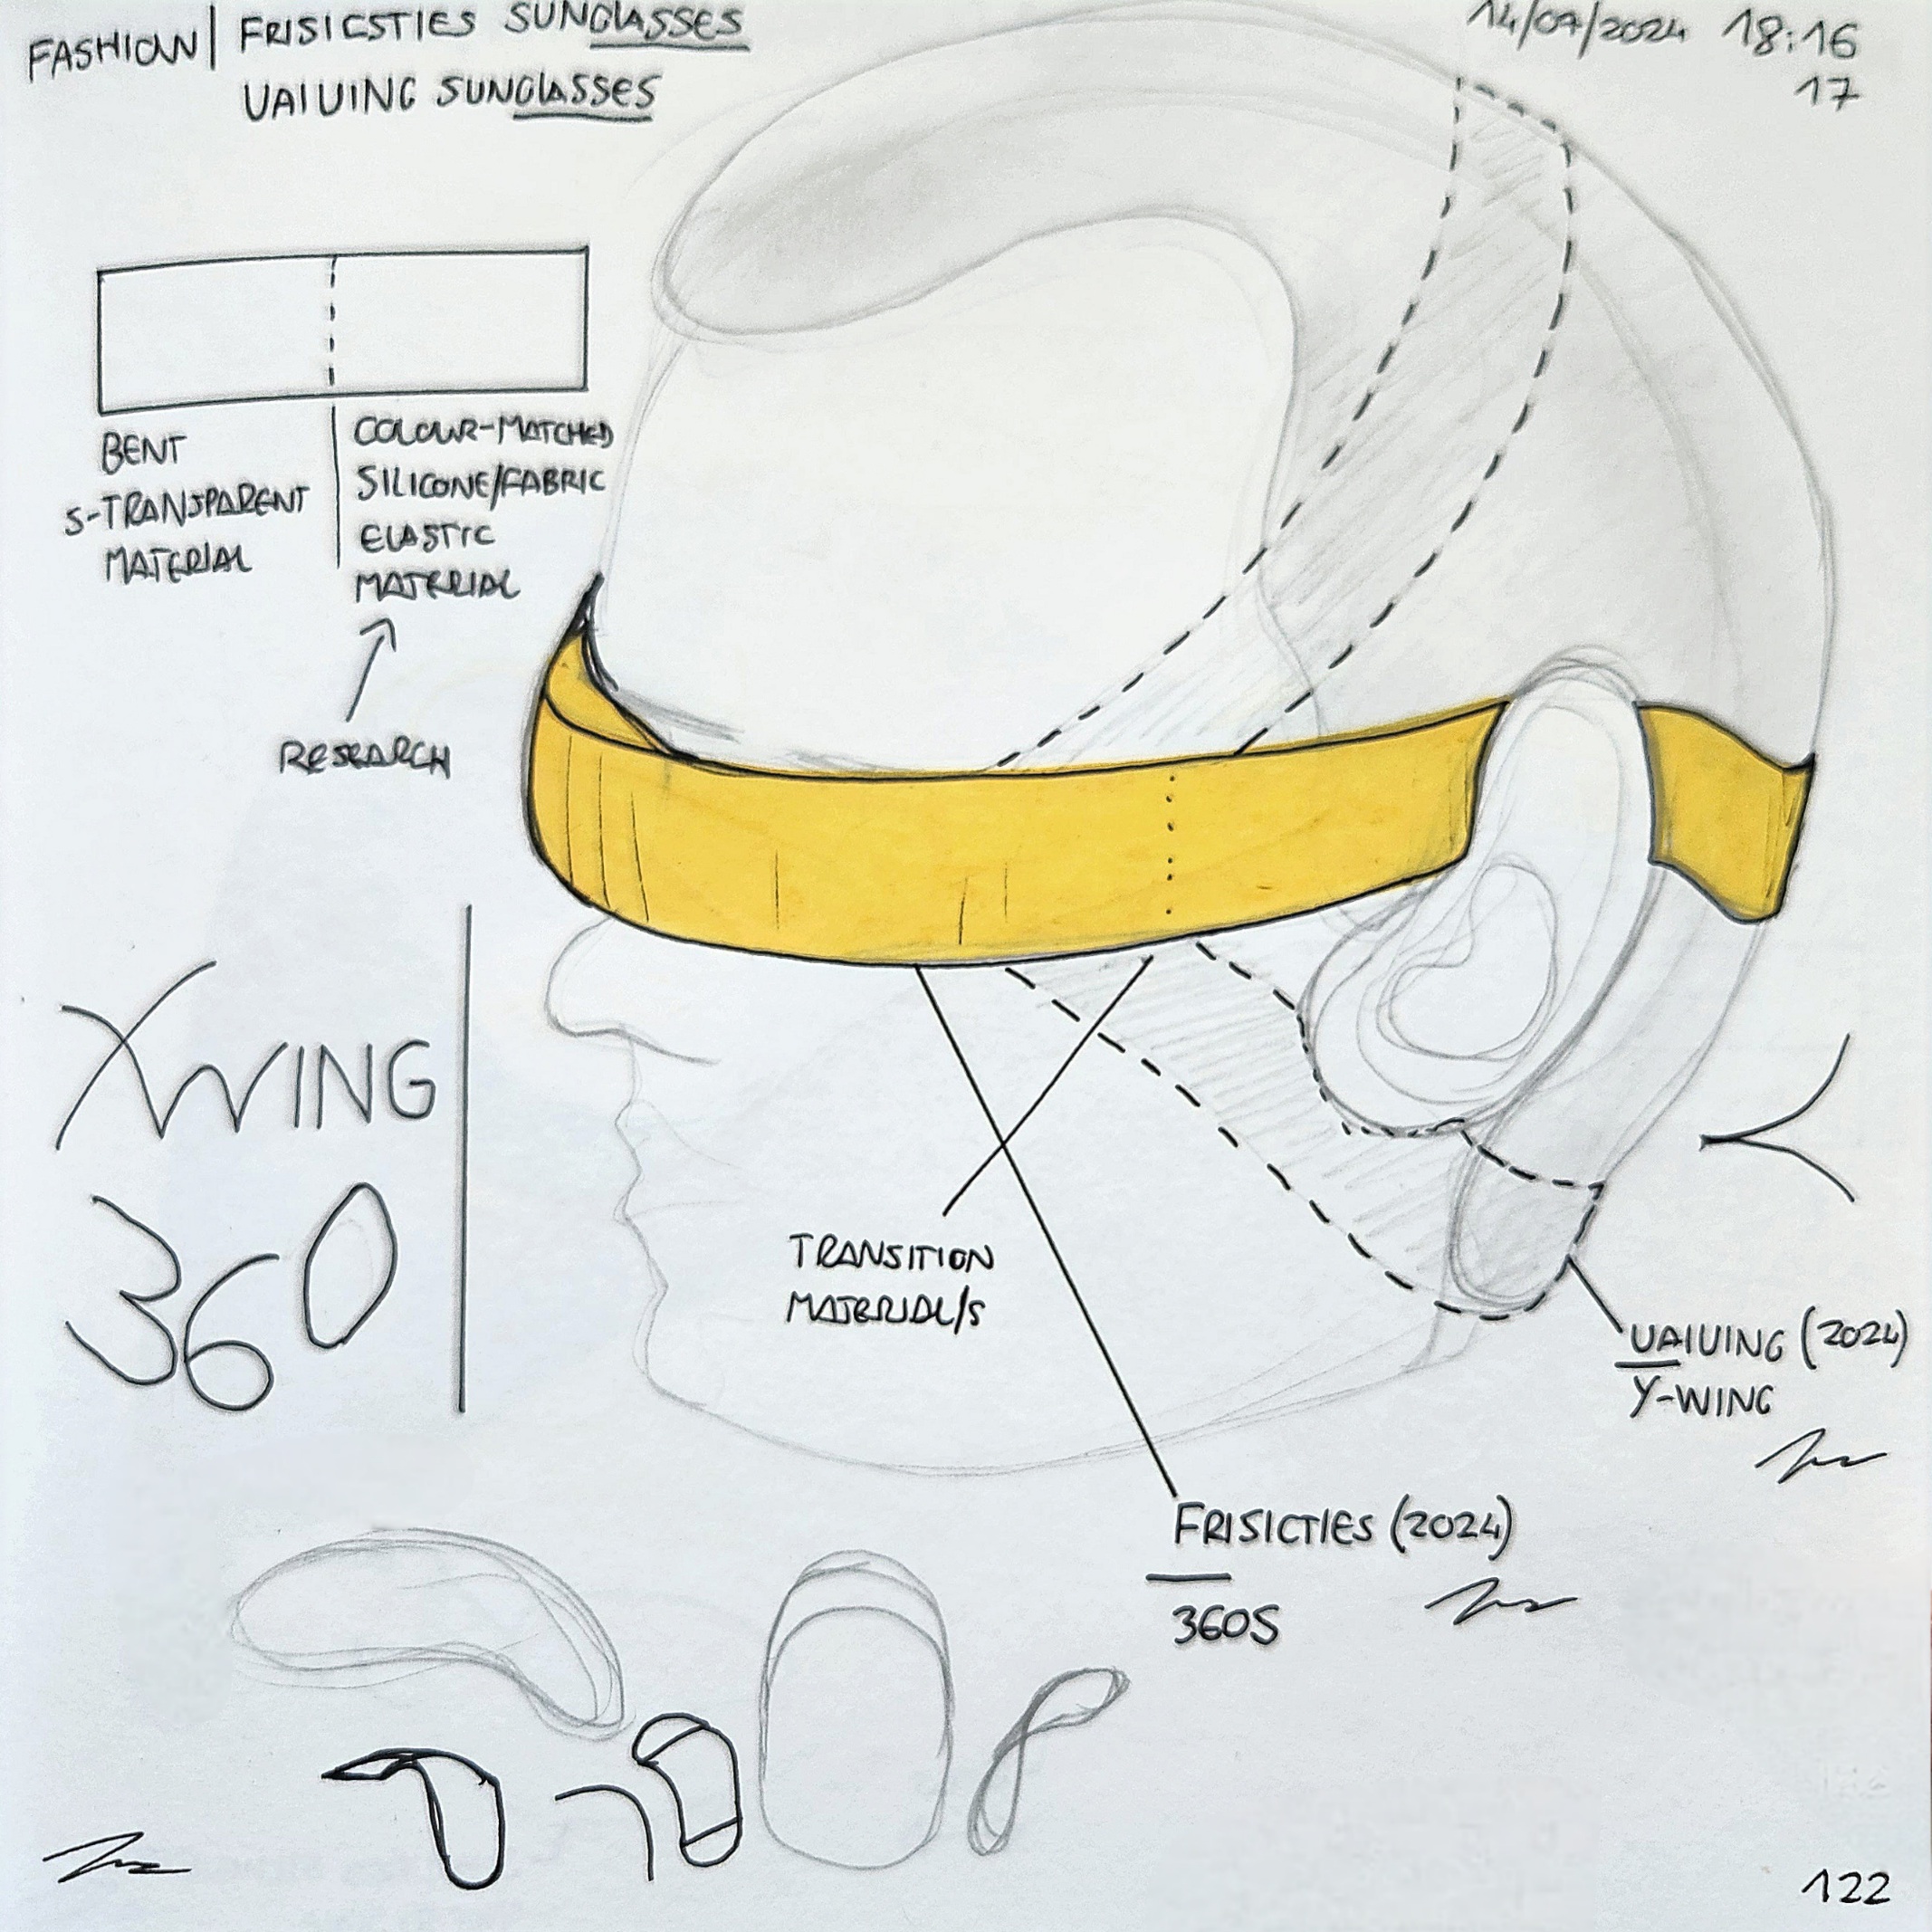 FASHION | FRISICSTIES SUNGLASSES
UAIUING SUNGLASSES
14/07/2024 18:16
17
BENT
S-TRANSPARENT
MATERIAL
COLOUR-MATCHED
SILICONE/FABRIC
ELASTIC
MATERIAL
RESEARCH
XWING
360
TRANSITION
MATERIAL/S
UAIUING (2024)
Y-WING
FRISICTIES (2024)
360S
122